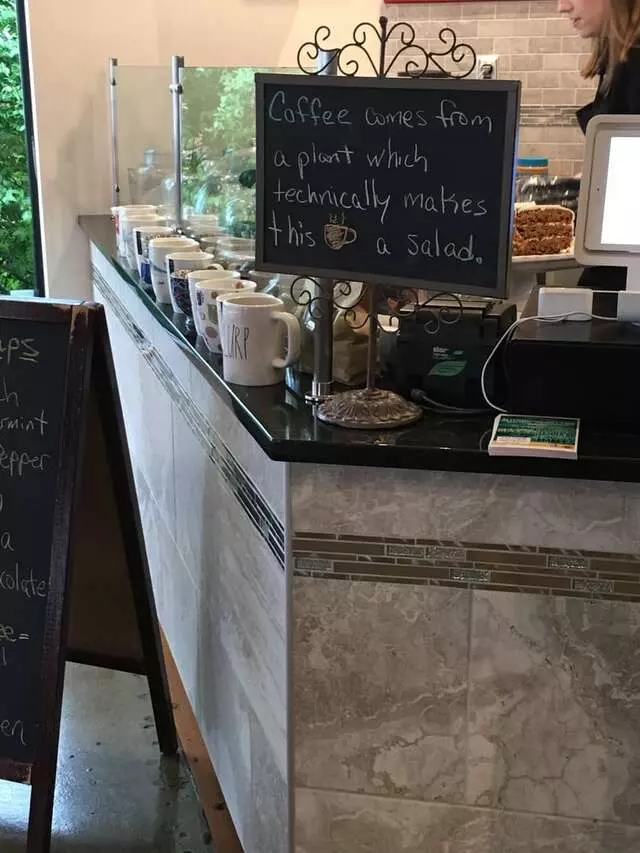 Coffee comes from
a plant which
technically makes
this a salad.
URP
ps
h
mint
epper
a
colate
ee=
en